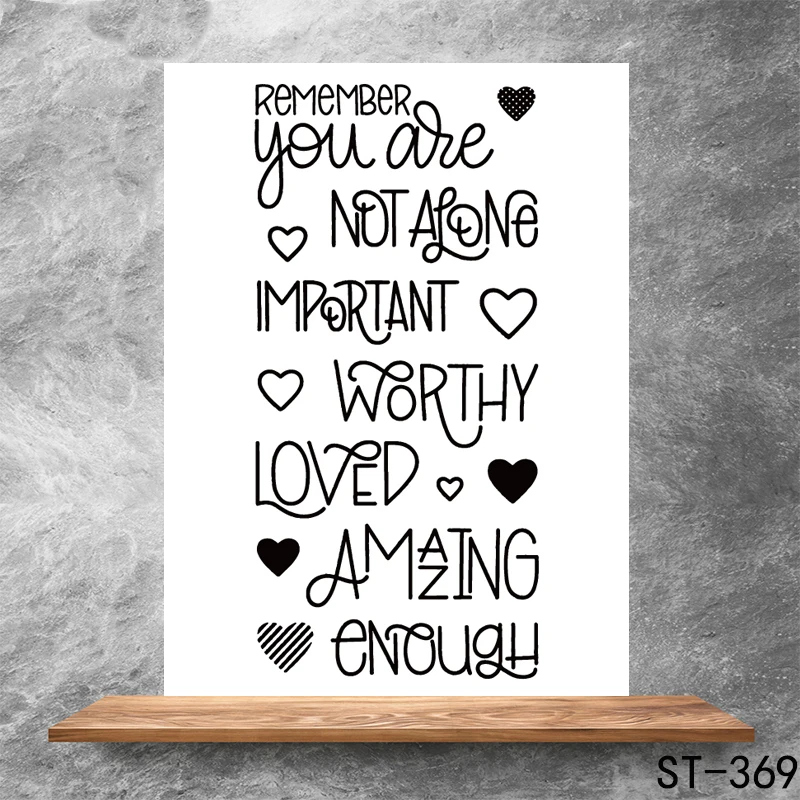 REMEMBER
you are
NOT ALONE
IMPORTANT
WORTHY
LOVED
AMAZING
ENOUGH
ST-369